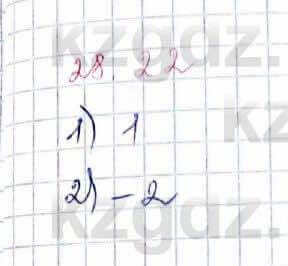 kzgdz.
28.22
1) 1
kz
2) - 2
kzgdz.